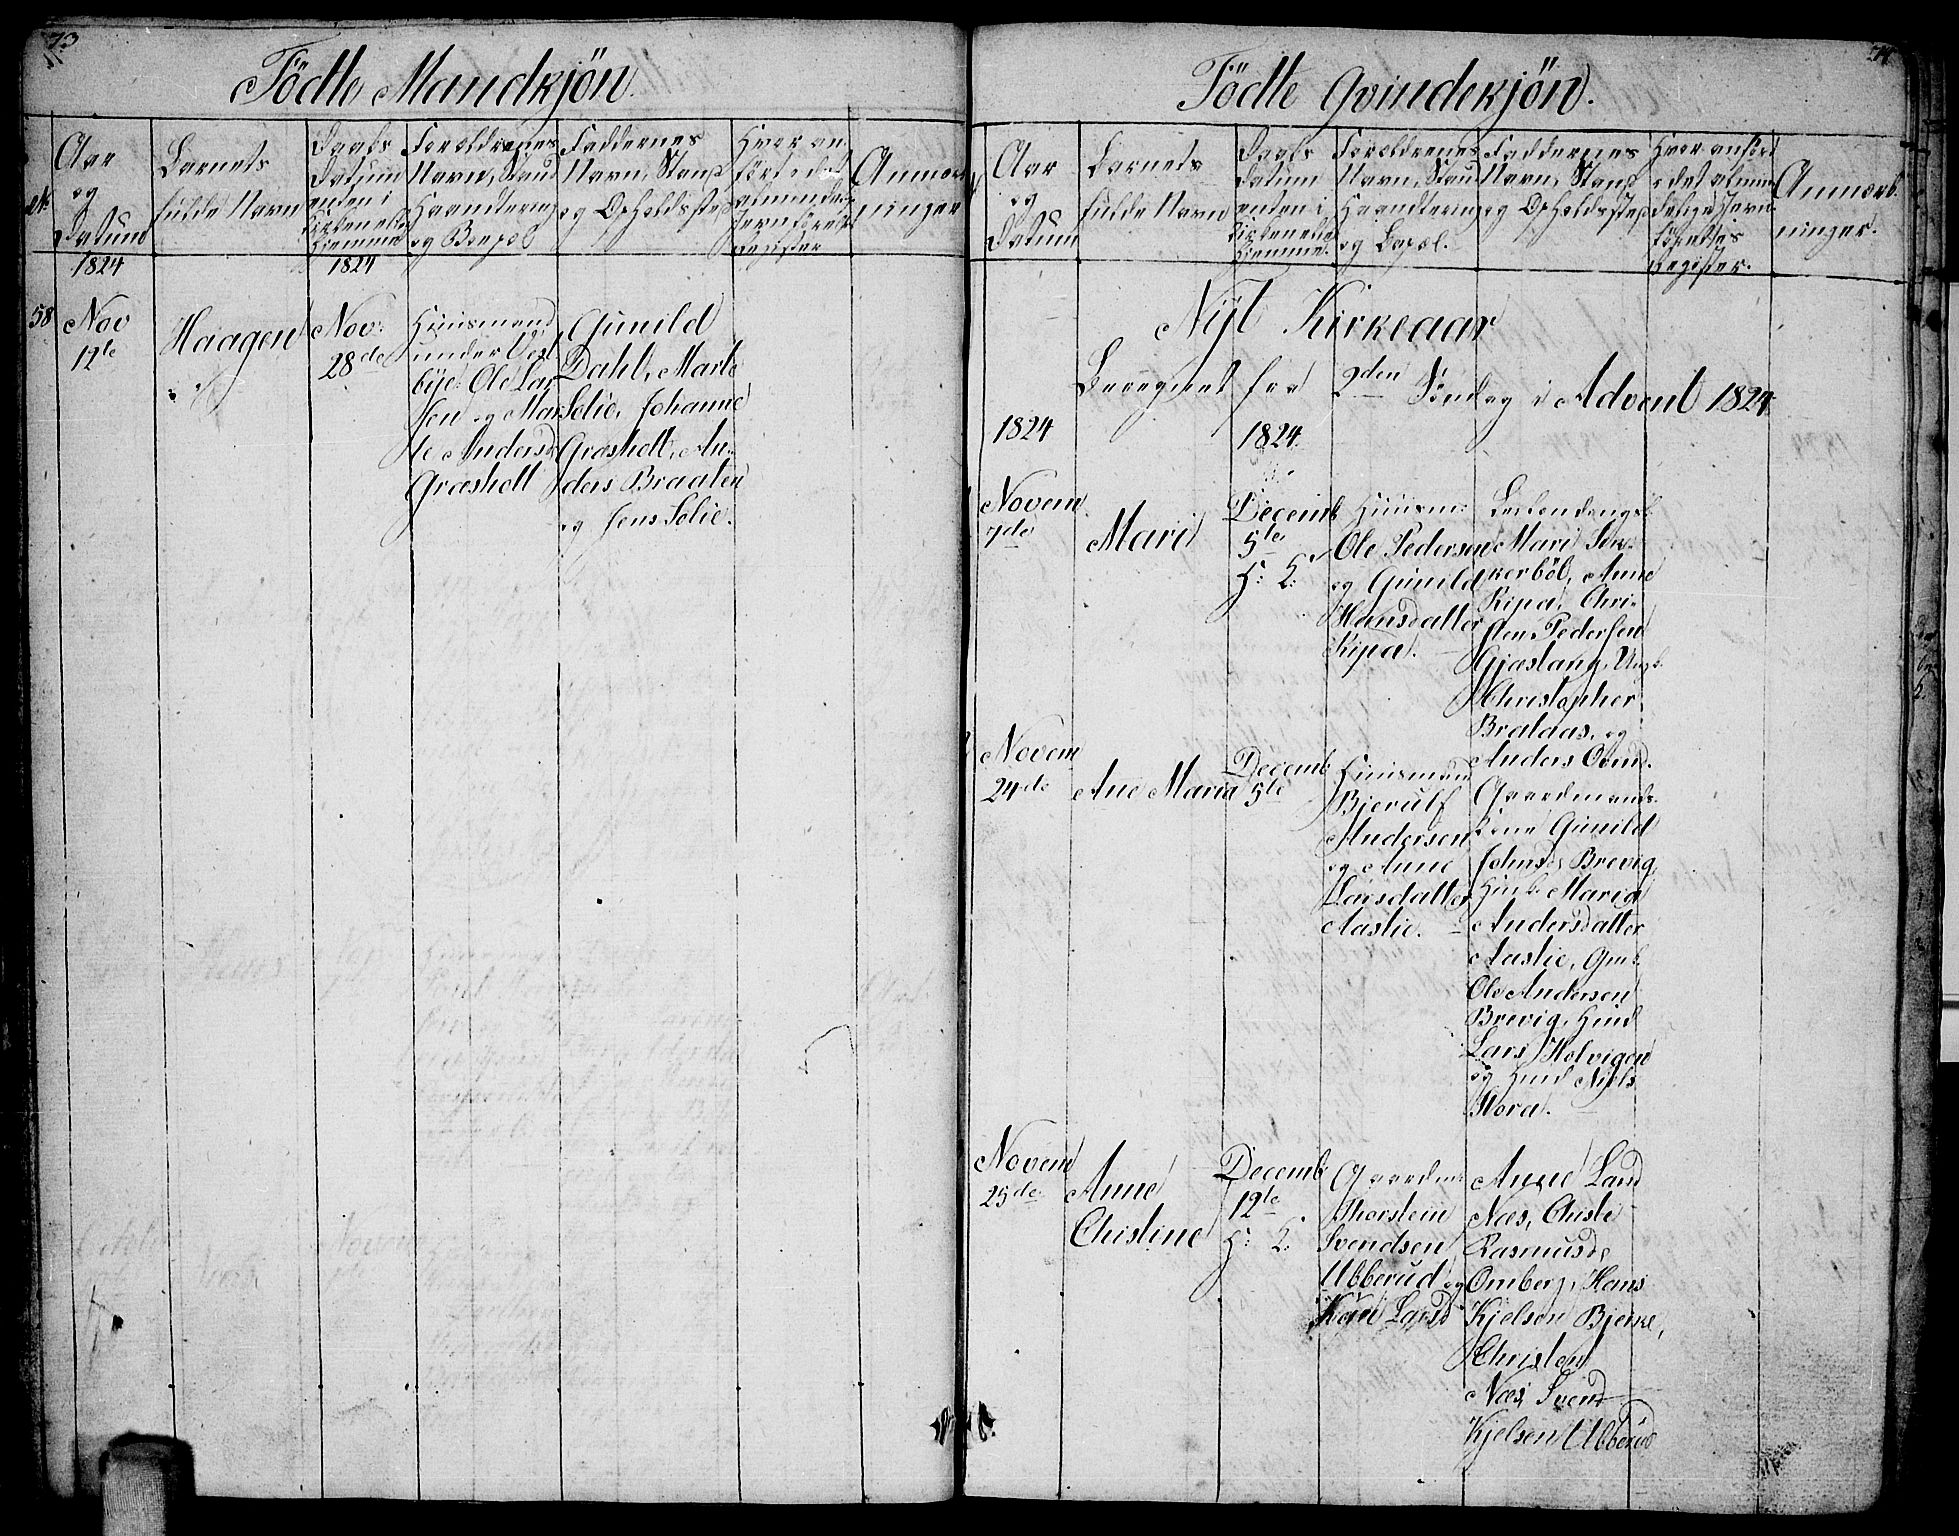 73
Födte Mandkjön.
No
Aar
og
Datum
Barnets
fulde Navn
Daabs
Datum
enten i
Kirken eller
Hjemme
Forældrenes
Navn, Stand
Haandtering
og Boepæl
Faddernes
Navn, Stand
og Opholdssted
Hvor an-
fört i det
almindelige
Jevnförelses
Register
Anmærk-
ninger
1824
1824
58
Nov
12te
Haagen
Nov:
28de
Huusmand
under Vest
bye Ole Lar
sen og Mar
te Andersd
Græsholt
Gunild
Dahl, Marte
Solie, Johanne
Græsholt, An-
ders Braaten
og Jens Solie.
74
Födte Qvindekjön.
Aar
og
Datum
Barnets
fulde Navn
Daabs
Datum
enten i
Kirken eller
Hjemme.
Forældrenes
Navn, Stand
Haandtering
og Bopæl.
Faddernes
Navn, Stand
og Opholdssted
Hvor anfört
i det almin-
delige Jevn-
förelses
Register.
Anmærk-
ninger.
Nyt Kirkeaar
Beregnet fra 2den Söndag i Advent 1824
1824
1824.
Novem
7de
Mari
Decemb
5te
H: K:
Huusm:
Ole Pedersen
og Gunild
Hansdatter
Ripa.
Mari
kerböl, Anne
Ripa, Chri-
sten Pedersen
Gjæslang, Ungk.
Christopher
Brataas, og
Anders
Novem
24de
Ane Maria
Decemb
5te
Huusmand
Bjerulf
Andersen
og Anne
Larsdatter
Aaslie.
Gaardmands-
kone Gunild
Johnsd. Brevig,
Maria
Andersdatter
Aaslie, Gmd.
Ole Andersen
Brevig, Huusm
Lars Holvigen
og Huusm Niels
Mora.
Novem
25de
Anne
Christine
Decemb
12te
H: K:
Gaardm:
Thorstein
Svendsen
Ubberud og
Kari Larsd
Anne Land
Næs, Christe
Rasmusd.
Omberg, Hans
Kjelsen Bjerke,
Christen
Næs, Svend
Kjelsen Ubberud